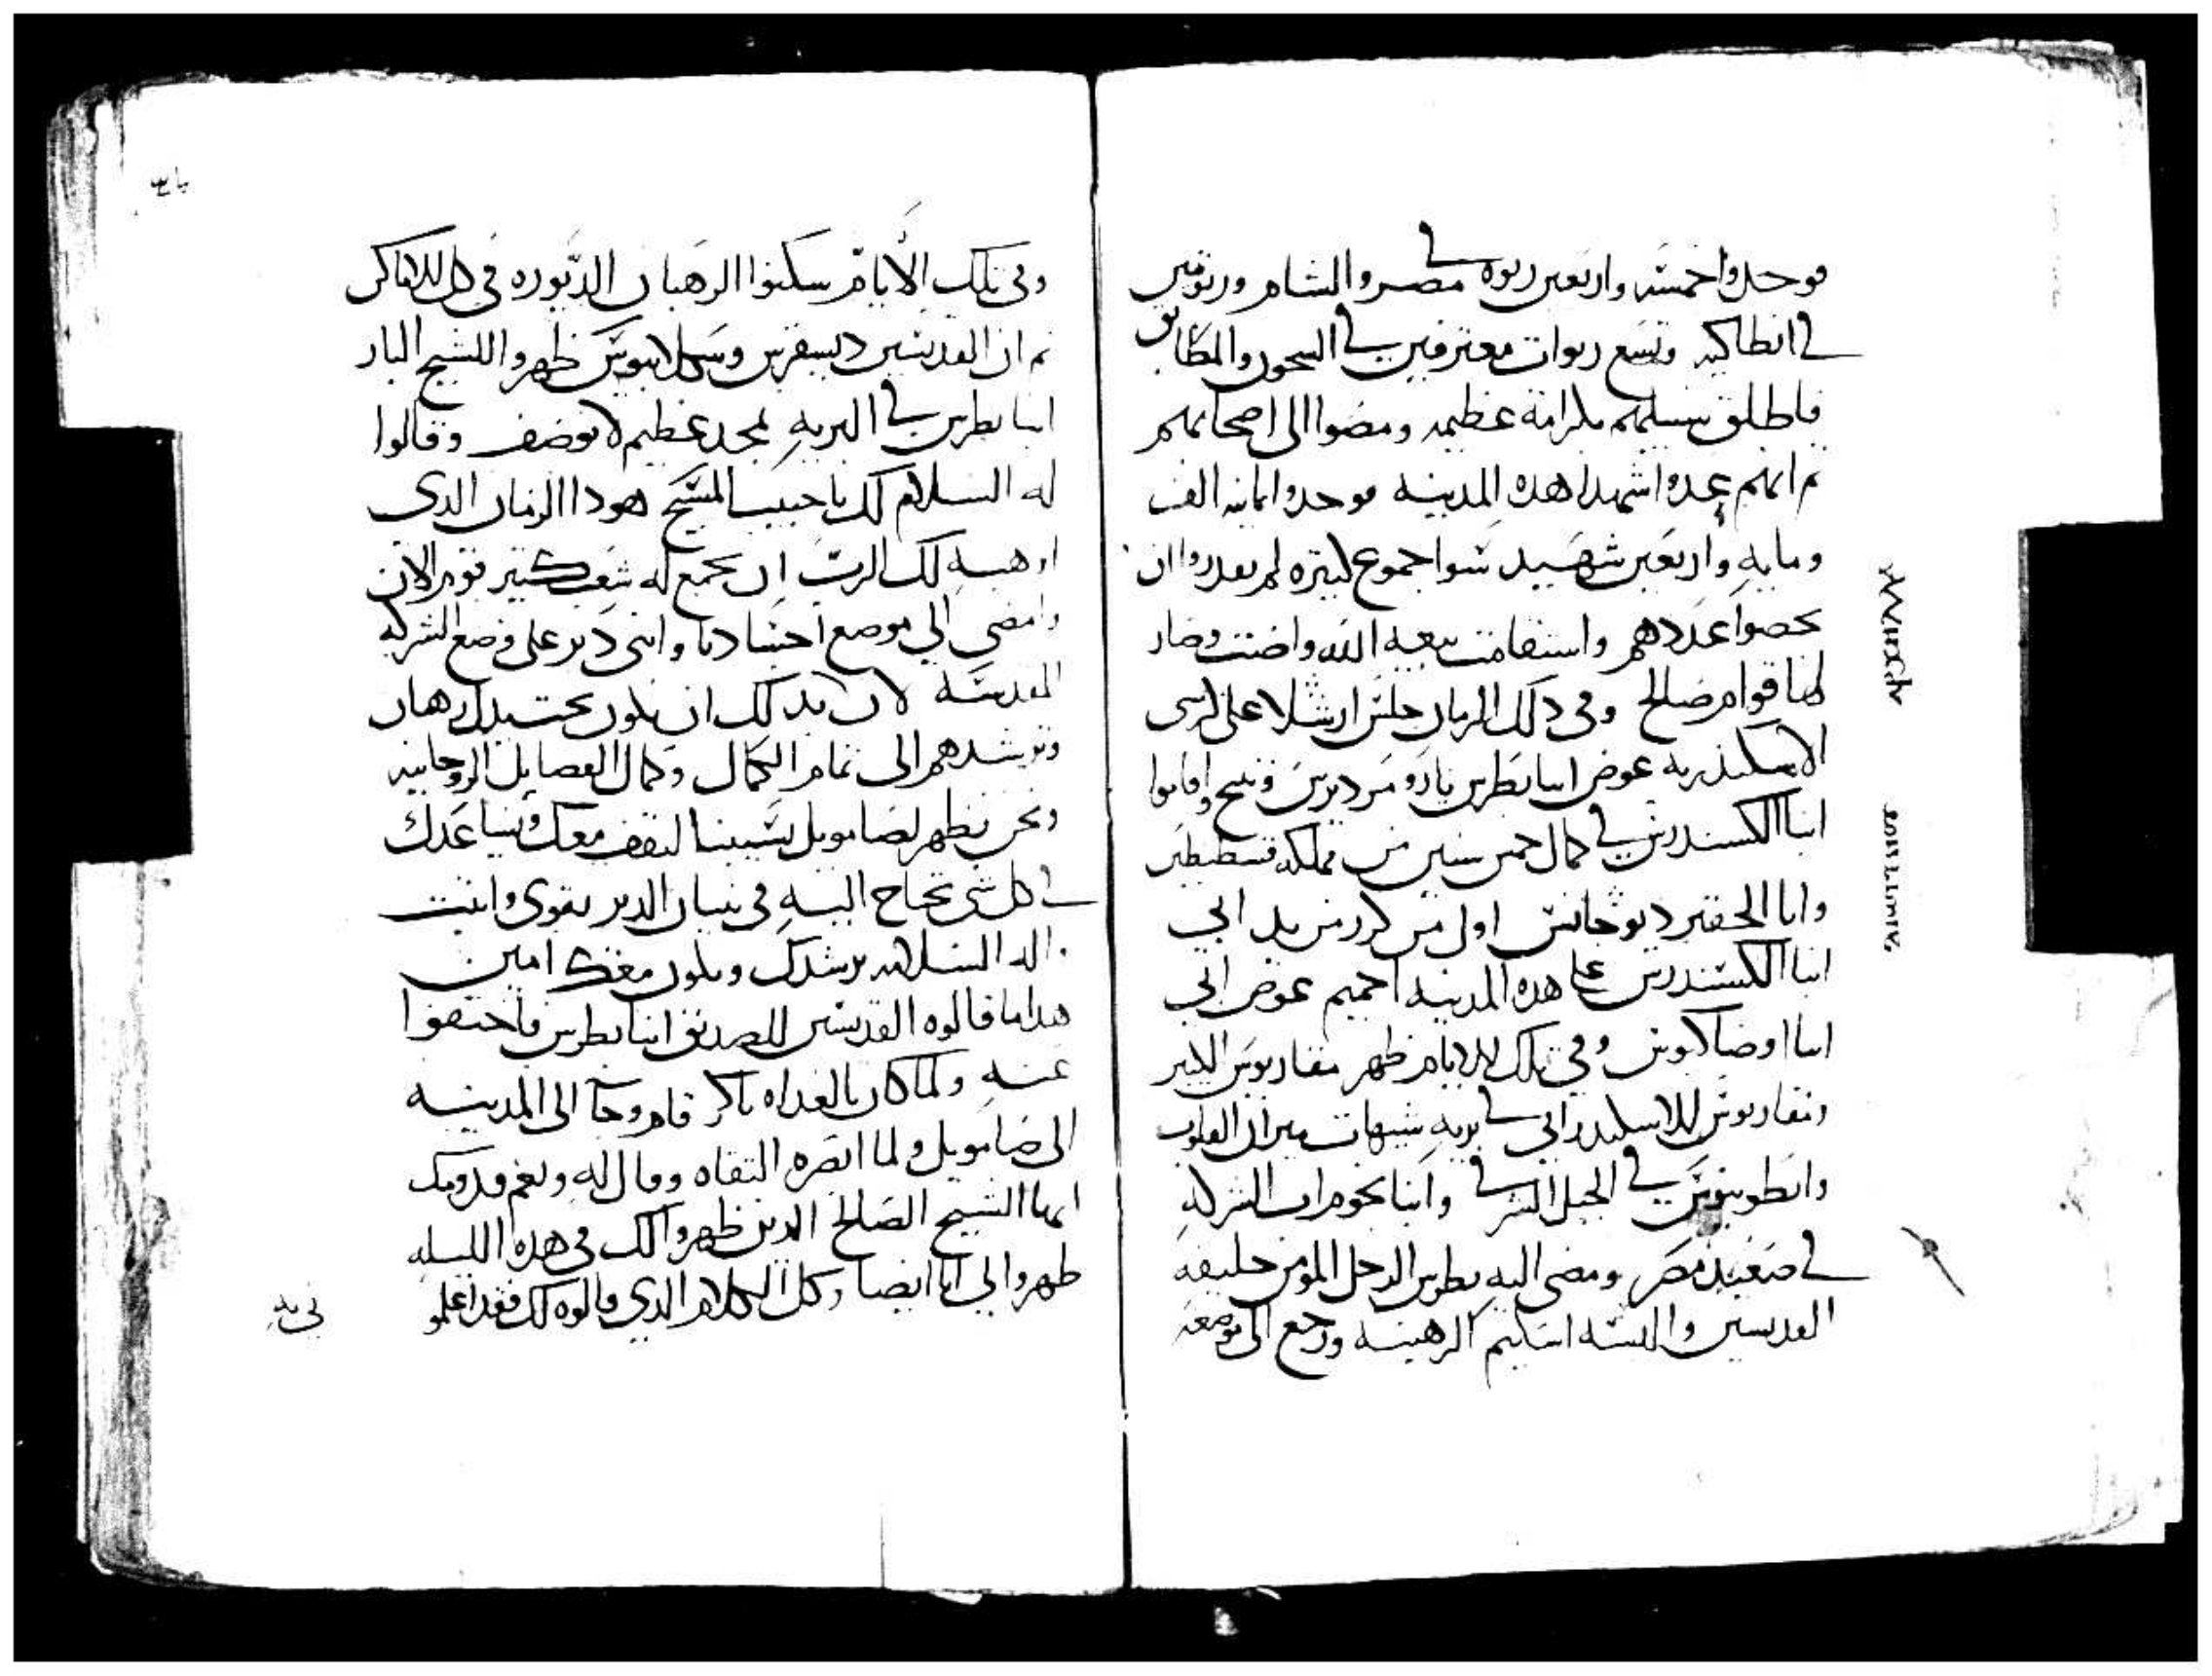 فوجدوا خمسه واربعين ربوه في مصر والشام وربوتين
في انطاكيه وتسع ربوات معترفين في السجون والمطابق
فاطلق سبيلهم بكرامة عظيمه ومضوا الى اصحابهم
ثم انهم عدوا شهدا هذه المدينه فوجدوا تمانيه الف
ومايه واربعين شهيد سوا جموع كتيره لم يقدروا ان
يحصوا عددهم واستقامت بيعة الله واضت وصار
لها قوام صالح وفي ذلك الزمان جلس ارشلا على كرسي
الاسكندريه عوض انبا بطرس يارومرديرس وتنيح واقاموا
انبا الكسندرس في كمال خمس سنين من مملكه قسطنطين
وانا الحقير ديوجانس اول من كرز من يد ابي
انبا الكسندرس على هذه المدينه اخميم عوض ابي
انبا اوضاكوس وفي تلك الايام ظهر مقاريوس الكبير
ومقاريوس الاسكندراني في بريه شيهات ميزان القلوب
وانطونيوس في الجبل الشرقي وانبا بخوم اب الشركه
في صعيد مصر ومضى اليه بطرس الرجل المومن خليفة
القديسين والبسه اسكيم الرهبنه ورجع الى موضعه
ⲇⲓⲟⲕⲗⲏⲧⲓⲁⲛⲟⲥ
وفي تلك الايام سكنوا الرهبان الديوره في كل الاماكن
ثم ان القديسين ديسقرس وسكلابيوس ظهروا للشيخ البار
انبا بطرس في البريه بمجد عظيم لا يوصف وقالوا
له السلام لك يا حبيب المسيح هوذا الزمان الذي
اوهبه لك الرب ان يجمع له شعب كتير قوم الان
وامضي الى موضع اجسادنا وابني دير على وضع الشركه
المقدسه لان يدلك ان يكون تحت يدك رهبان
وترشدهم الى تمام الكمال وكمال الفضايل الروحانيه
ونحن نظهر لصامويل نسيبنا ليقف معك ويساعدك
في كل شي تحتاج اليه في بنيان الدير تقوى واتبت
اله السلامه يرشدك ويكون معك امين
هذا ما قالوه القديسين للصديق انبا بطرس فاختفوا
عنه ولما كان بالغداه باكر قام وجا الى المدينه
الى صامويل ولما ابصره التقاه وقال له ونعم قدومك
ايها الشيخ الصالح الذين ظهروا لك في هذه الليله
ظهروا لي انا ايضا وكل الكلام الذي قالوه لك فقد اعلمو
ني به